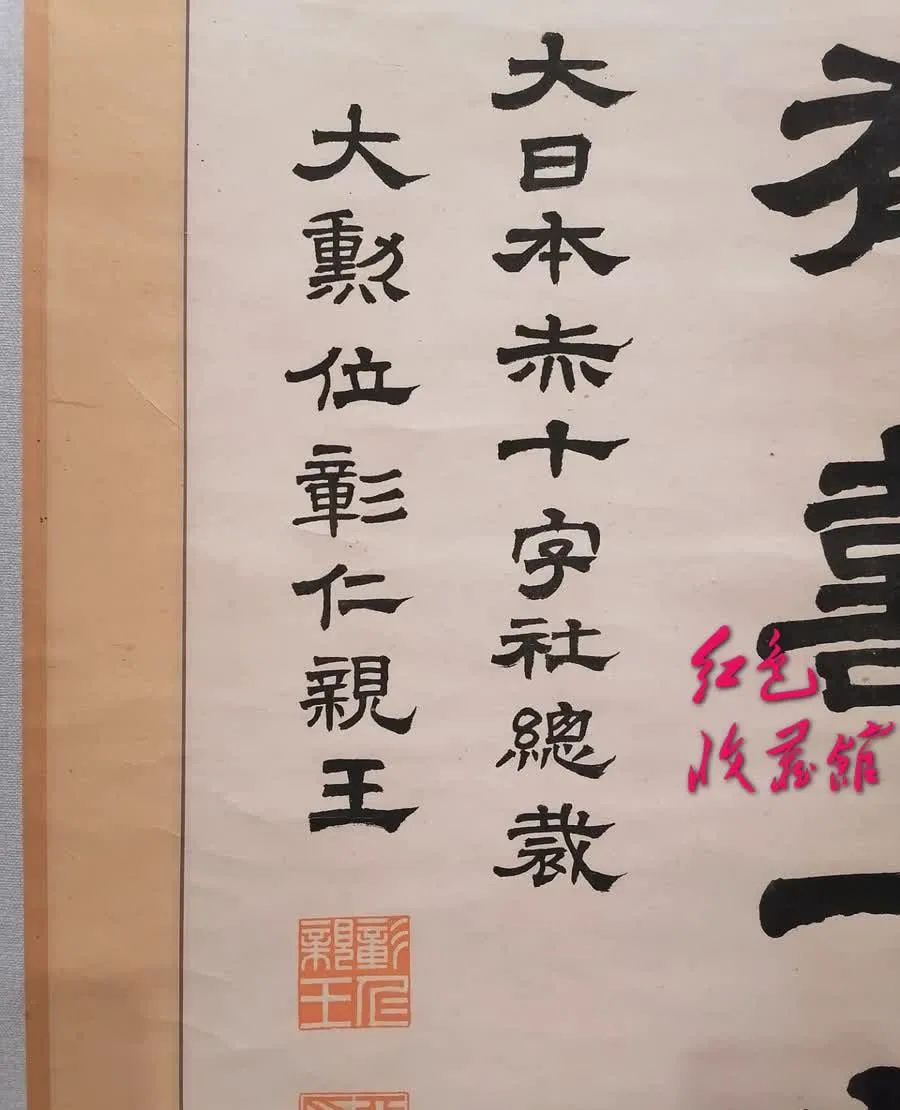 大日本赤十字社總裁
大勲位彰仁親王
彰仁親王
红色
收藏馆